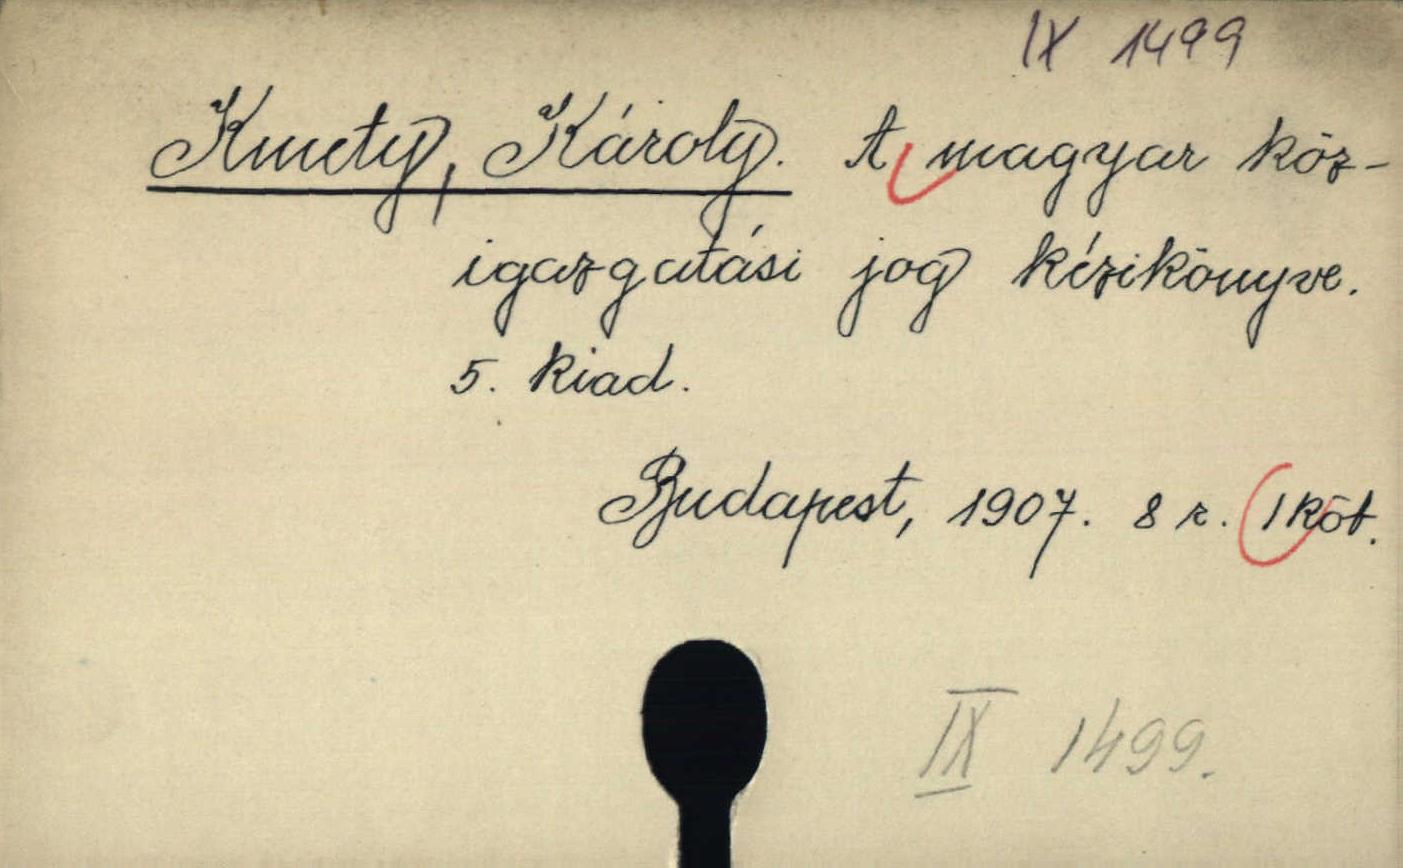 IX 1499
Kmety, Károly. A magyar köz-
igazgatási jog kézikönyve.
5. kiad.
Budapest, 1907. 8 r. 1 köt.
IX 1499.